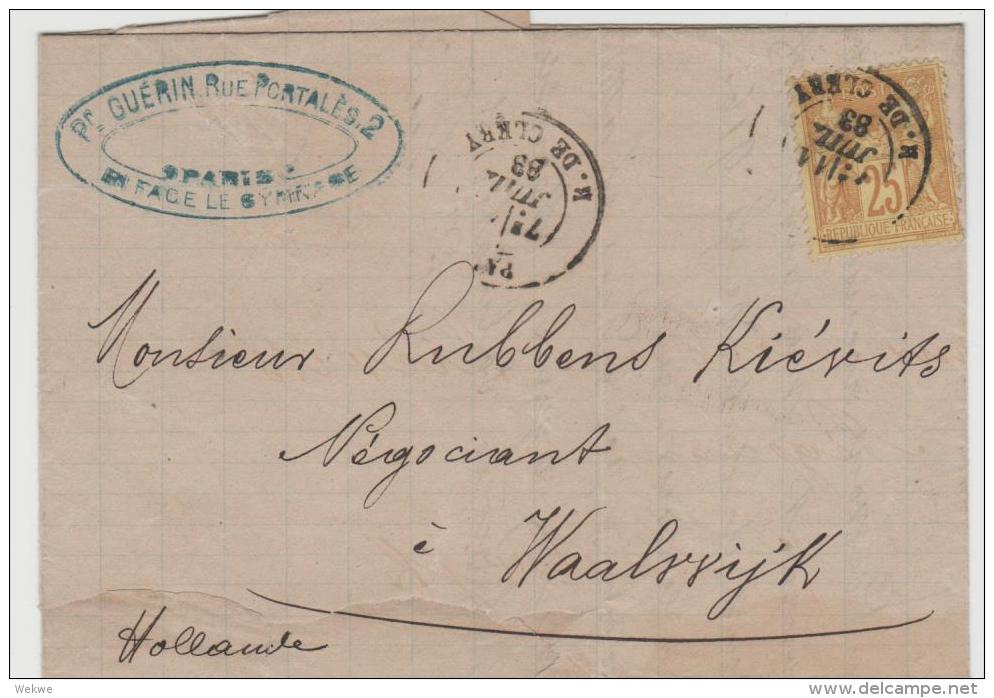 Pre GUÉRIN, RUE PORTALÈS, 2
PARIS
EN FACE LE GYMNASE
R. DE CLERY
7E
JUIL
83
PA
R. DE CLERY
JUIL
83
25
REPUBLIQUE FRANÇAISE
Monsieur Rubbens Kiévits
Négociant
à Waalwijk
Hollande
Wekwe
delcampe.net